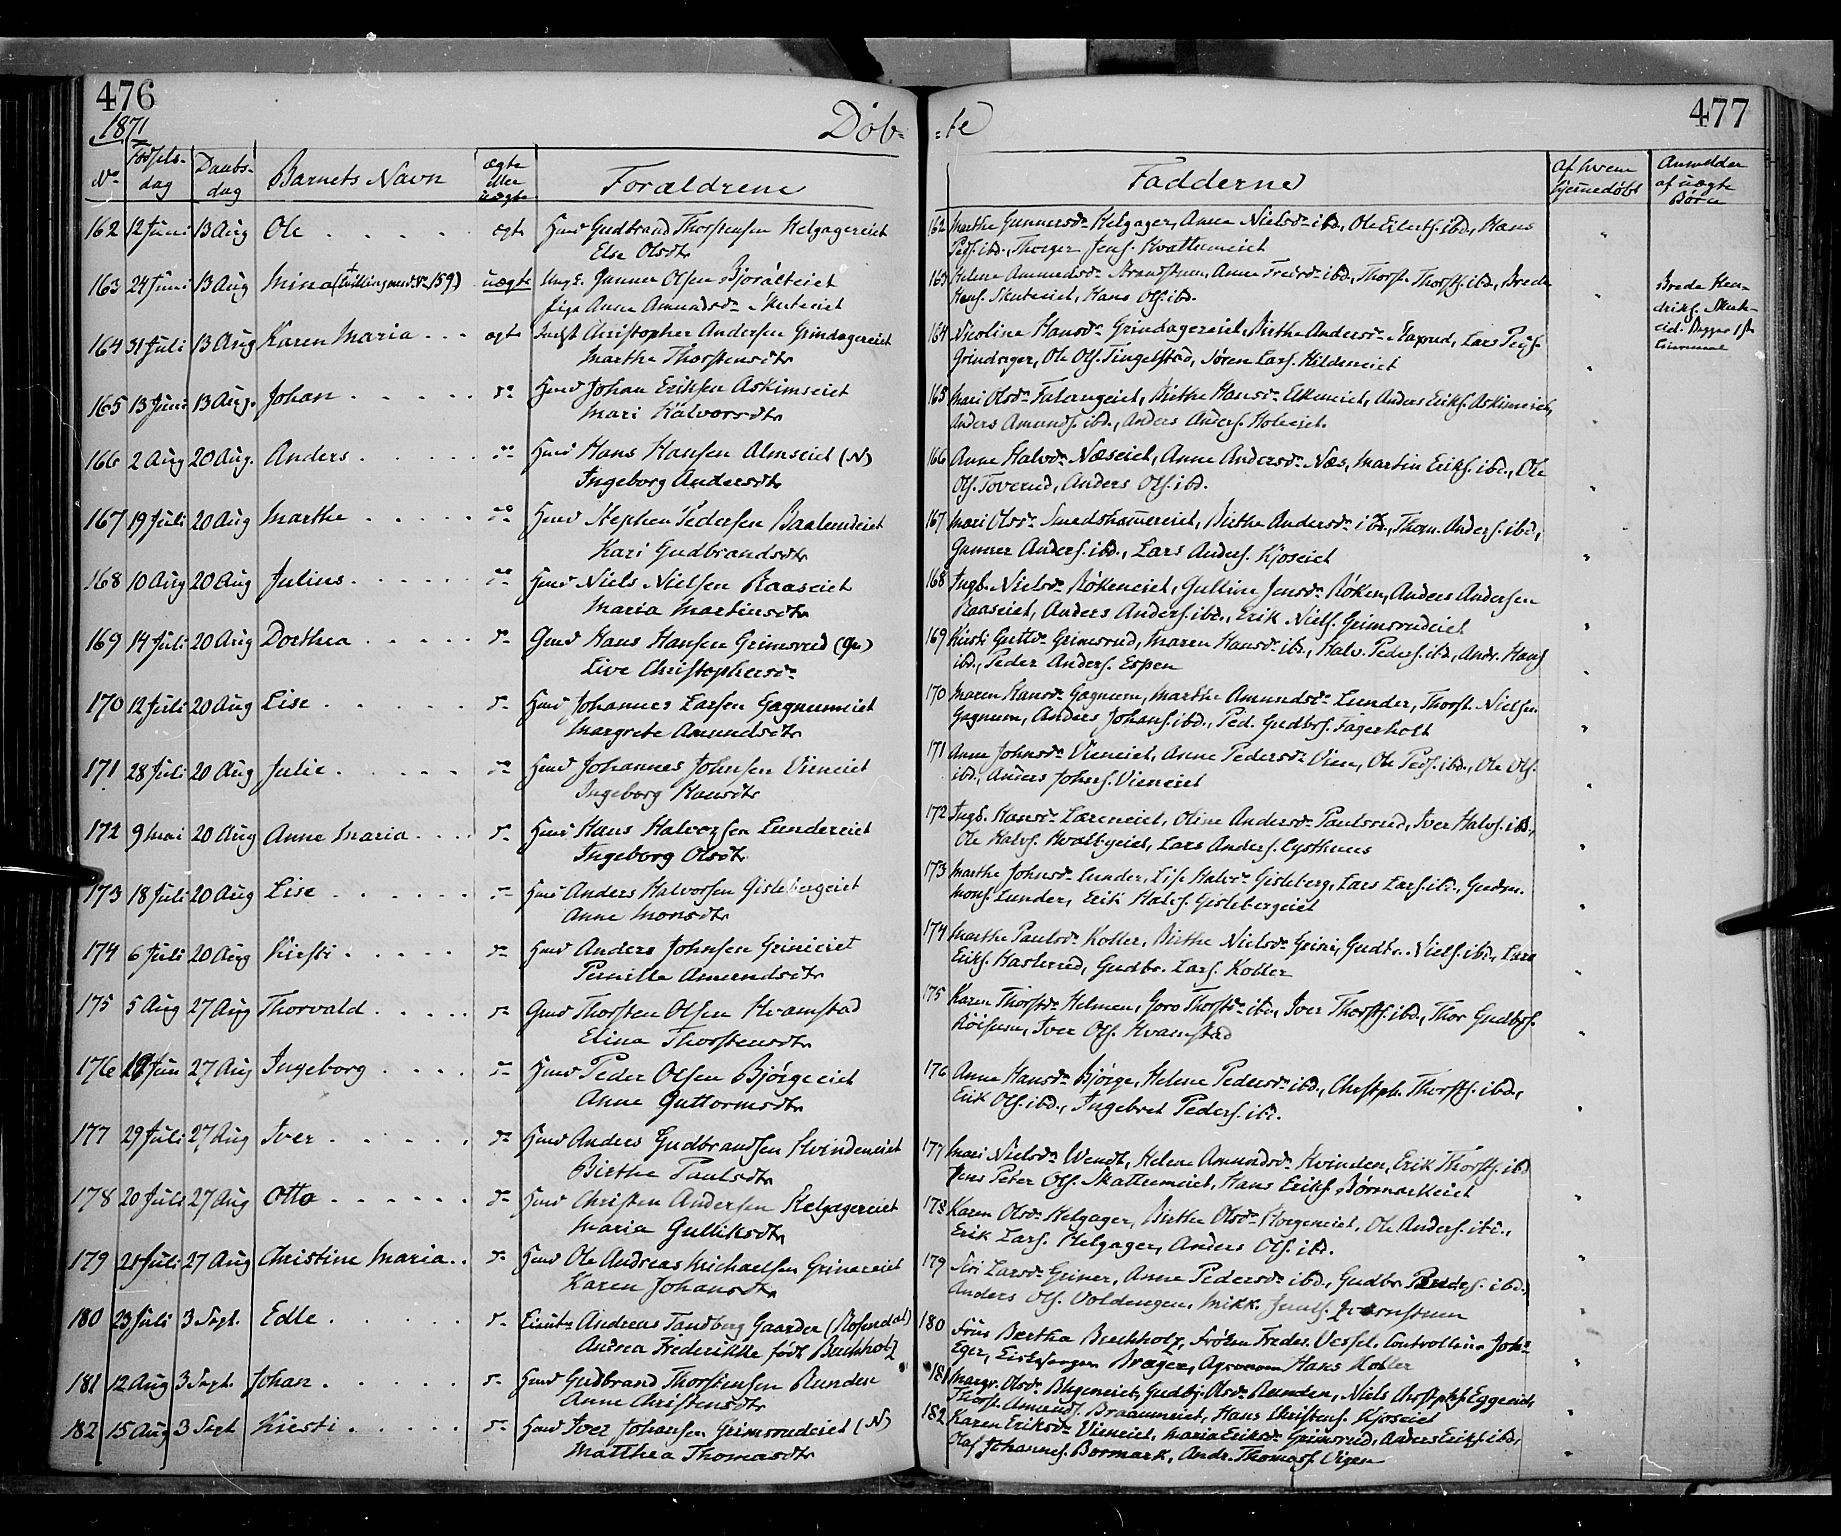 476
1871
Døb-
No
Fødsels-
dag
Daabs-
dag
Barnets Navn
ægte
eller
uægte
Forældrene
162 12 Juni 13 Aug Ole ægte Hmd Gudbrand Thorstensen Helgagereiet
Else Olsdtr
163 24 Juni 13 Aug Mina (Tvilling med No 159) uægte Ungk. Gunner Olsen Bjoralteiet
Pige Anne Amundsdr Skuteiet
164 31 Juli 13 Aug Karen Maria ægte Indst Christopher Andersen Grindagereiet
Marthe Thorstensdtr
165 13 Juni 13 Aug. Johan do Hmd Johan Eriksen Askimseiet
Mari Halvorsdtr
166 2 Aug 20 Aug. Anders do Hmd Hans Hansen Almseiet (N)
Ingeborg Andersdtr
167 19 Juli 20 Aug Marthe do Hmd Stephen Pedersen Baalerudeiet
Kari Gudbrandsdtr
168 10 Aug 20 Aug Julius do Hmd Niels Nielsen Raaseiet
Maria Martinsdtr
169 14 Juli 20 Aug Dorthea do Gmd Hans Hansen Grimsrud (Gr)
Live Christophersdr
170 12 Juli 20 Aug Lise do Hmd Johannes Larsen Gagnumeiet
Margrete Amundsdtr
171 28 Juli 20 Aug Julie do Hmd Johannes Johnsen Vieneiet
Ingeborg Hansdtr
172 9 Mai 20 Aug Anne Maria do Hmd Hans Halvorsen Lundereiet
Ingeborg Olsdtr
173 18 Juli 20 Aug Lise do Hmd Anders Halvorsen Gislebergeiet
Anne Monsdtr
174 6 Juli 20 Aug Kirsti do Hmd Anders Johnsen Grinieiet
Pernille Amundsdtr
175 5 Aug 27 Aug Thorvald do Gmd Thorsten Olsen Hvamstad
Elina Thorstensdtr
176 Jun 27 Aug Ingeborg do Hmd Peder Olsen Bjørgeeiet
Anne Guttormsdtr
177 29 Juli 27 Aug Iver do Hmd Anders Gudbrandsen Hvindeneiet
Birthe Paulsdtr
178 20 Juli 27 Aug Otto do Hmd Christen Andersen Helgagereiet
Maria Gulliksdtr
179 21 Juli 27 Aug Christine Maria do Hmd Ole Andreas Michaelsen Grinereiet
Karen Johansdtr
180 23 Juli 3 Sept. Edle do Lieutn Andreas Tandberg Gaarder (Rosendal)
Andrea Frederikke født Buchholz
181 12 Aug 3 Sept. Johan do Hmd Gudbrand Thorstensen Runden
Anne Christensdtr
182 15 Aug 3 Sept Kirsti do Hmd Iver Johansen Grimsrudeiet (N)
Matthea Thomasdtr
477
-te
Fadderne
Af hvem
hjemmedøbt
Anmelder
af uægte
Børn
162 Marthe Gunnersdr Helgager, Anne Nielsdr ibd, Ole Eilerts. ibd., Hans
Peds. ibd., Thorger Jens. Kvatumeiet
163 Helene Amundsdr Strandstuen, Anne Fredrdr ibd., Thorst. Thorsts. ibd., Brede
Hens. Skuteeiet, Hans Ols. ibd.
Brede Hen-
driks. Skut-
eiet
164 Nicoline Hansdr Grindagereiet, Birthe Andersdr Staxrud, Lars Peds.
Grindager, Ole Ols. Tingelstad, Søren Lars. Hildeneiet
165 Mari Olsdr Falangeiet, Birthe Hansdr Ekeneiet, Anders Eriks. Askimeiet,
Anders Amunds. ibd., Anders Anders. Holeiet.
166 Anne Halvdr Næseiet, Anne Andersdr Næs, Martin Eriks. ibd., Ole
Ols. Toverud, Anders Ols. ibd.
167 Mari Olsdr Smedshaureiet, Birthe Andersdr ibd., Thom. Anders. ibd.,
Gunner Anders. ibd., Lars Anders. Kjoseiet
168 Ingb. Nielsdr Røkeneiet, Gulline Jensdr Røken, Anders Andersen
Raaseiet, Anders Anders. ibd., Erik Niels. Grimsrudeiet
169 Kirsti Guttdr Grimsrud, Maren Hansdr ibd., Halv. Peders. ibd., Andr. Hans.
ibd., Peder Anders. Espen
170 Maren Hansdr Gagnum, Marthe Amundsdr Lunder, Thorst. Nielsen
Gagnum, Anders Johans. ibd., Ped. Gudbrs. Fagerholt
171 Anne Johnsdr Vieneiet, Anne Pedersdr Vien, Ole Peds. ibd., Ole Ols.
ibd., Anders Johns. Vieneiet
172 Ingb. Hansdr Lareneiet, Oline Andersdr Paulsrud, Iver Halvs. ibd.,
Ole Halvs. Kvalbyeiet, Lars Anders. Lysthuus
173 Marthe Johnsdr Lunder, Lise Halvdr Gisleberg, Lars Lars. ibd., Gudm.
Mons. Lunder, Erik Halvs. Gislebergeiet
174 Marthe Paulsdr Koller, Birthe Nielsdr Grini, Gudbr. Niels. ibd., Lars
Eriks. Haslerud, Gudbr. Lars. Koller
175 Karen Thorstdr Helmen, Goro Thorstdr ibd., Iver Thorsts. ibd., Thor Gudbrs.
Røisum, Iver Ols. Hvamstad
176 Anne Hansdr Bjørge, Helene Pedersdr ibd., Christph. Thorsts. ibd.,
Erik Ols. ibd., Ingebret Peders. ibd.
177 Mari Nielsdr Wendt, Helene Amundsdr Hvinden, Erik Thorsts. ibd
Jens Peter Ols. Skattumeiet, Hans Eriks. Bormarkeiet
178 Karen Olsdr Helgager, Birthe Olsdr Horgeneiet, Ole Anders. ibd.,
Erik Lars. Helgager, Anders Ols. ibd.
179 Siri Larsdr Griner, Anne Pedersdr ibd., Gudbr. Peders. ibd.,
Anders Ols. Voldengen, Mikk. Jernstuen
180 Frue Bertha Buchholz, Frøken Freder. Vessel, Controlleur Johs
Eger, Brager, Agronom Hans Koller
181 Margr. Olsdr Blegeneiet, Gudbj. Olsdr Runden, Niels Chrstphs. Eggeeiet,
Thorst. Amunds. Braaumeiet, Hans Christens. Kjoseiet
182 Karen Eriksdr Vieneiet, Maria Eriksdr Grimsrud, Anders Eriks. ibd.,
Olaf Johannes. Bormark, Andr. Thomass. Vigen